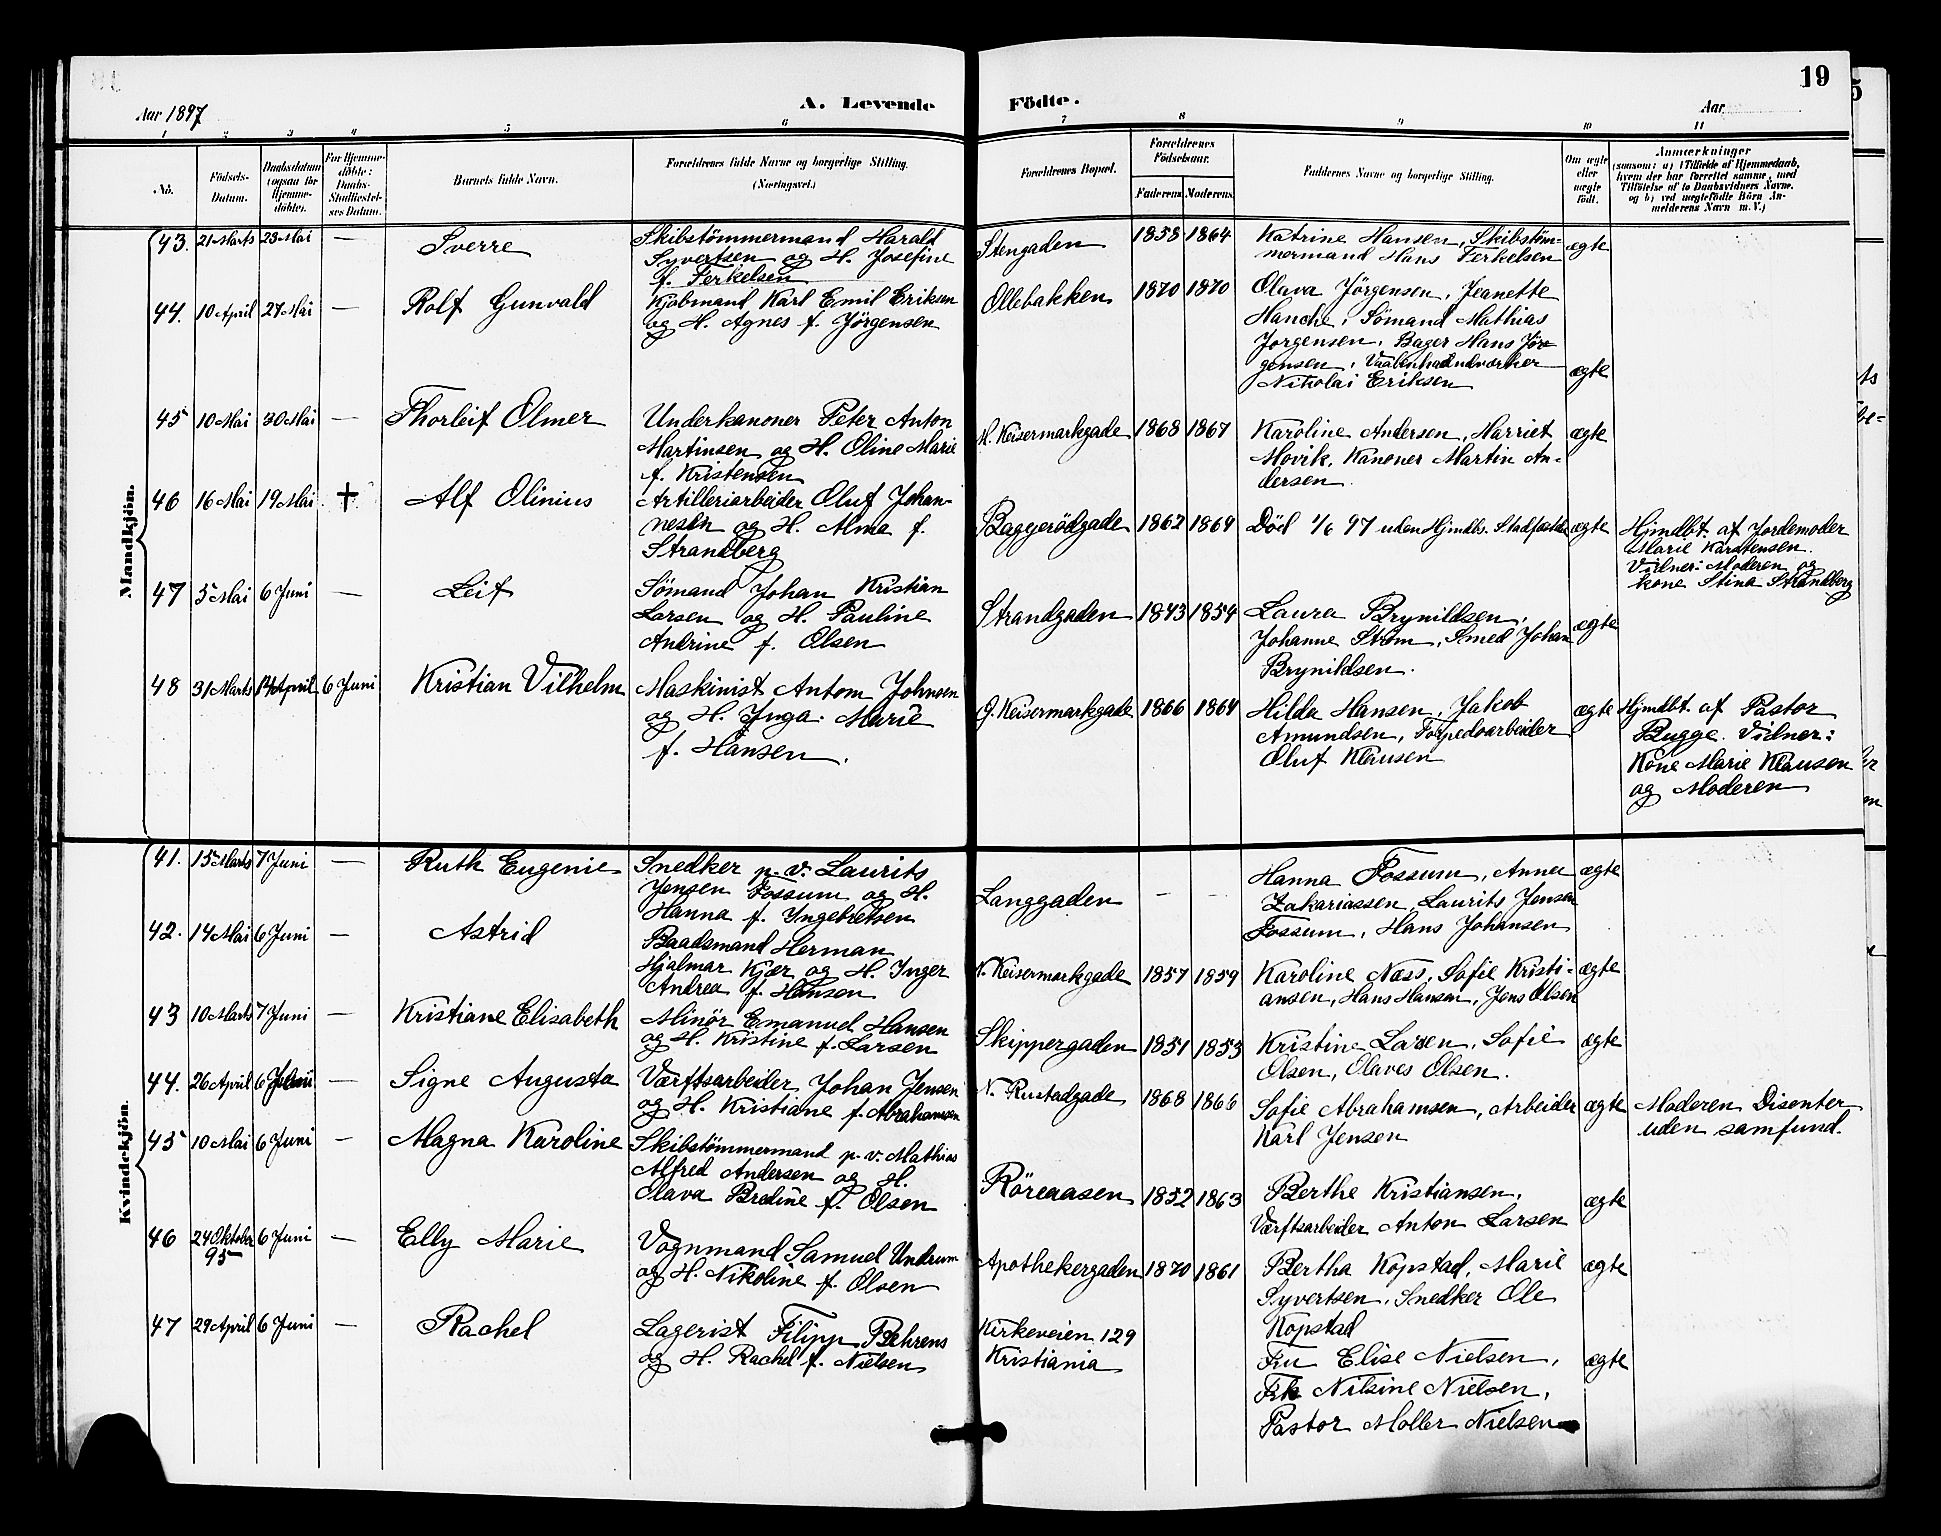 19
Aar 1897
A. Levende Födte.
Aar
1 2 3 4 5 6 7 8 9 10 11
No.
Födsels-Datum.
Daabsdatum (ogsaa for Hjemme-döbte).
For Hjemme-döbte: Daabs-Stadfæstel-ses Datum.
Barnets fulde Navn.
Forældrenes fulde Navne og borgerlige Stilling. (Næringsvei.)
Forældrenes Bopæl.
Forældrenes Födselsaar.
Faderens Moderens
Faddernes Navne og borgerlige Stilling.
Om ægte eller uægte födt.
Anmærkninger
(saasom: a) i Tilfælde af Hjemmedaab, hvem der har forrettet samme, med Tilföielse af to Daabsvidners Navne. og b) ved uægtefödte Börn Anmelderens Navn m. V.)
Mandkjön.
43. 21 Marts 23 Mai — Sverre
Skibstömmermand Harald
Syvertsen og H. Josefine
f. Terkelsen
Stengaden 1858 1864
Katrine Hansen, Skibstöm-
mermand Hans Terkelsen
ægte
44. 10 April 27 Mai — Rolf Gunvald
Kjöbmand Karl Emil Eriksen
og H. Agnes f. Jörgensen
Ollebakken 1870 1870
Olava Jörgensen, Jeanette
Hanche, Sömand Mathias
Jorgensen, Bager Hans Jör-
gensen, Vaabenhaandværker
Nikolai Eriksen
ægte
45 10 Mai 30 Mai — Thorleif Olmer
Underkanoner Peter Anton
Martinsen og H. Oline Marie
f. Kristensen
N. Keisermarkgade 1868 1867
Karoline Andersen, Harriet
Movik, Kanoner Martin An-
dersen.
ægte
46 16 Mai 19 Mai † Alf Olinius
Artilleriarbeider Oluf Johan-
nesen og H. Alma f.
Strandberg
Baggerödgade 1862 1864
Död 1/6 97 uden Hjmdbs. Stadfæstelse
ægte
Hjmdbt. af Jordemoder
Marie Karstensen.
Vidner: Moderen og
kone Stina Strandberg
47 5 Mai 6 Juni — Leif
Sömand Johan Kristian
Larsen og H. Pauline
Andrine f. Olsen
Strandgaden 1843 1854
Laura Brynildsen,
Johanne Ström, Smed Johan
Brynildsen.
ægte
48 31 Marts 14 April 6 Juni Kristian Vilhelm
Maskinist Antom Johnsen
og H. Inga Marie
f. Hansen.
G. Keisermarkgade 1866 1864
Hilda Hansen, Jakob
Amundsen, Torpedoarbeider
Oluf Klausen
ægte
Hjmdbt. af Pastor
Bugge. Vidner:
Kone Marie Klausen
og Moderen
Kvindekjön.
41. 15 Marts 7 Juni — Ruth Eugenie
Snedker p. v. Laurits
Jensen Fossum og H.
Hanna f. Ingebretsen
Langgaden — —
Hanna Fossum, Anna
Zakariassen, Laurits Jensen
Fossum, Hans Johansen
ægte
42. 14 Mai 6 Juni — Astrid
Baadsmand Herman
Hjalmar Kjær og H. Inger
Andrea f. Hansen
N. Keisermarkgade 1857 1859
Karoline Næss, Sofie Kristi-
ansen, Hans Hansen, Jens Olsen
ægte
43 10 Marts 7 Juni — Kristiane Elisabeth
Minör Emanuel Hansen
og H. Kristine f. Larsen
Skippergaden 1851 1853
Kristine Larsen, Sofie
Olsen, Olaves Olsen.
ægte
44. 26 April 6 Juni — Signe Augusta
Værftsarbeider Johan Jensen
og H. Kristiane f. Abrahamsen
N. Rustadgade 1868 1866
Sofie Abrahamsen, Arbeider
Karl Jensen
ægte
Moderen Disenter
uden samfund.
45 10 Mai 6 Juni — Magna Karoline
Skibstömmermand p. v. Mathias
Alfred Andersen og H.
Olava Bredine f. Olsen
Röreaasen 1852 1863
Berthe Kristiansen,
Værftsarbeider Anton Larsen
ægte
46 24 Oktober 95 6 Juni — Elly Marie
Vognmand Samuel Undrum
og H. Nikoline f. Olsen
Apothekergaden 1870 1861
Bertha Kopstad, Marie
Syvertsen, Snedker Ole
Kopstad
ægte
47 29 April 6 Juni — Rachel
Lagerist Filipp Behrens
og H. Rachel f. Nielsen
Kirkeveien 129
Kristiania
Fru Elise Nielsen,
Frk Nilsine Nielsen,
Pastor Moller Nielsen
ægte